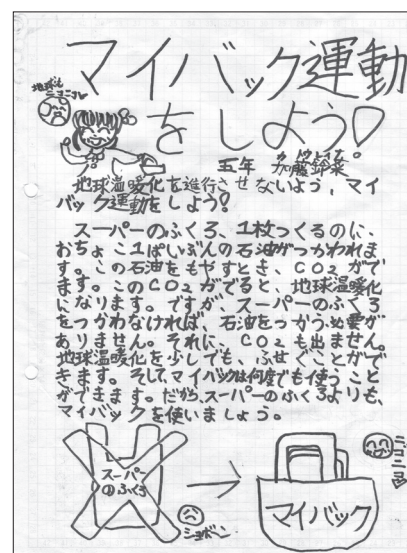 マイバック運動
をしよう♡
地球もニコニコ♪
五年 加藤鈴菜
地球温暖化を進行させないよう、マイ
バック運動をしよう!
スーパーのふくろ、1枚つくるのに、
おちょこ1ぱいぶんの石油がつかわれま
す。この石油をもやすとき、CO2がで
ます。このCO2がでると、地球温暖化
になります。ですが、スーパーのふくろ
をつかわなければ、石油をつかう必要が
ありません。それに、CO2も出ません。
地球温暖化を少しでも、ふせぐことがで
きます。そして、マイバックは何度でも使うこと
ができます。だから、スーパーのふくろよりも、
マイバックを使いましょう。
スーパー
のふくろ
ショボーン
マイバック
ニコニコ